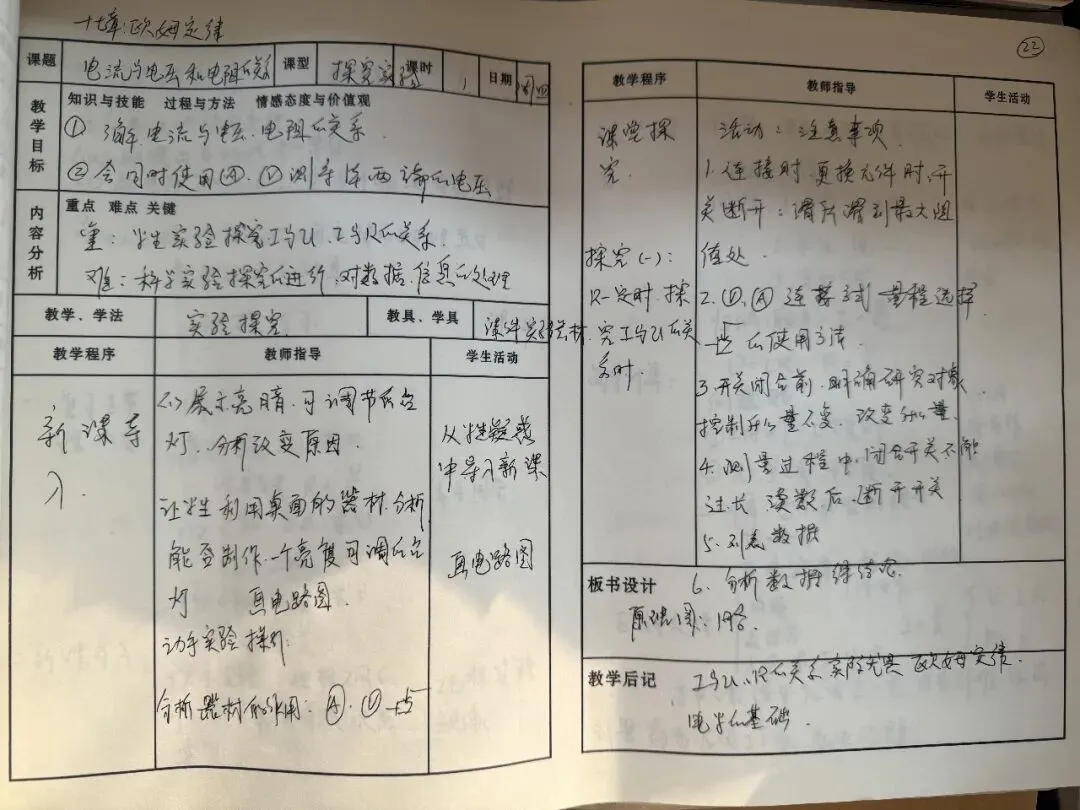 十七章:欧姆定律
课题 电流与电压和电阻的关系 课型 探究实验 课时 1 日期 周四
教学目标
知识与技能 过程与方法 情感态度与价值观
① 了解电流与电压.电阻的关系.
② 会同时使用Ⓐ.Ⓥ测导体两端的电压
内容分析
重点 难点 关键
重:学生实验探究I与U、I与R的关系.
难:科学实验探究的进行,对数据.信息的处理
教学、学法 实验探究 教具、学具 课件实验器材.
教学程序 教师指导 学生活动
新课导入.
展示亮暗.可调节的台
灯.分析改变原因.
让学生利用桌面的器材.分析
能否制作.一个亮度可调的台
灯 画电路图.
动手实验操作:
分析器材的作用:Ⓐ.Ⓥ
从学生疑惑
中导入新课
画电路图
22
教学程序 教师指导 学生活动
课堂探
究.
探究(一):
R一定时.探
究I与U的关
系时.
活动:注意事项.
1.连接时.更换元件时.开
关断开:滑片滑到最大阻
值处.
2.Ⓥ、Ⓐ连接方式 量程选择
的使用方法.
3.开关闭合前.明确研究对象
控制什么量不变.改变什么量.
4.测量过程中.闭合开关不能
过长 读数后.断开开关
5.列表数据
6.分析数据得结论.
板书设计
原理图:
教学后记
I与U、R的关系实际就是欧姆定律.
电学的基础.